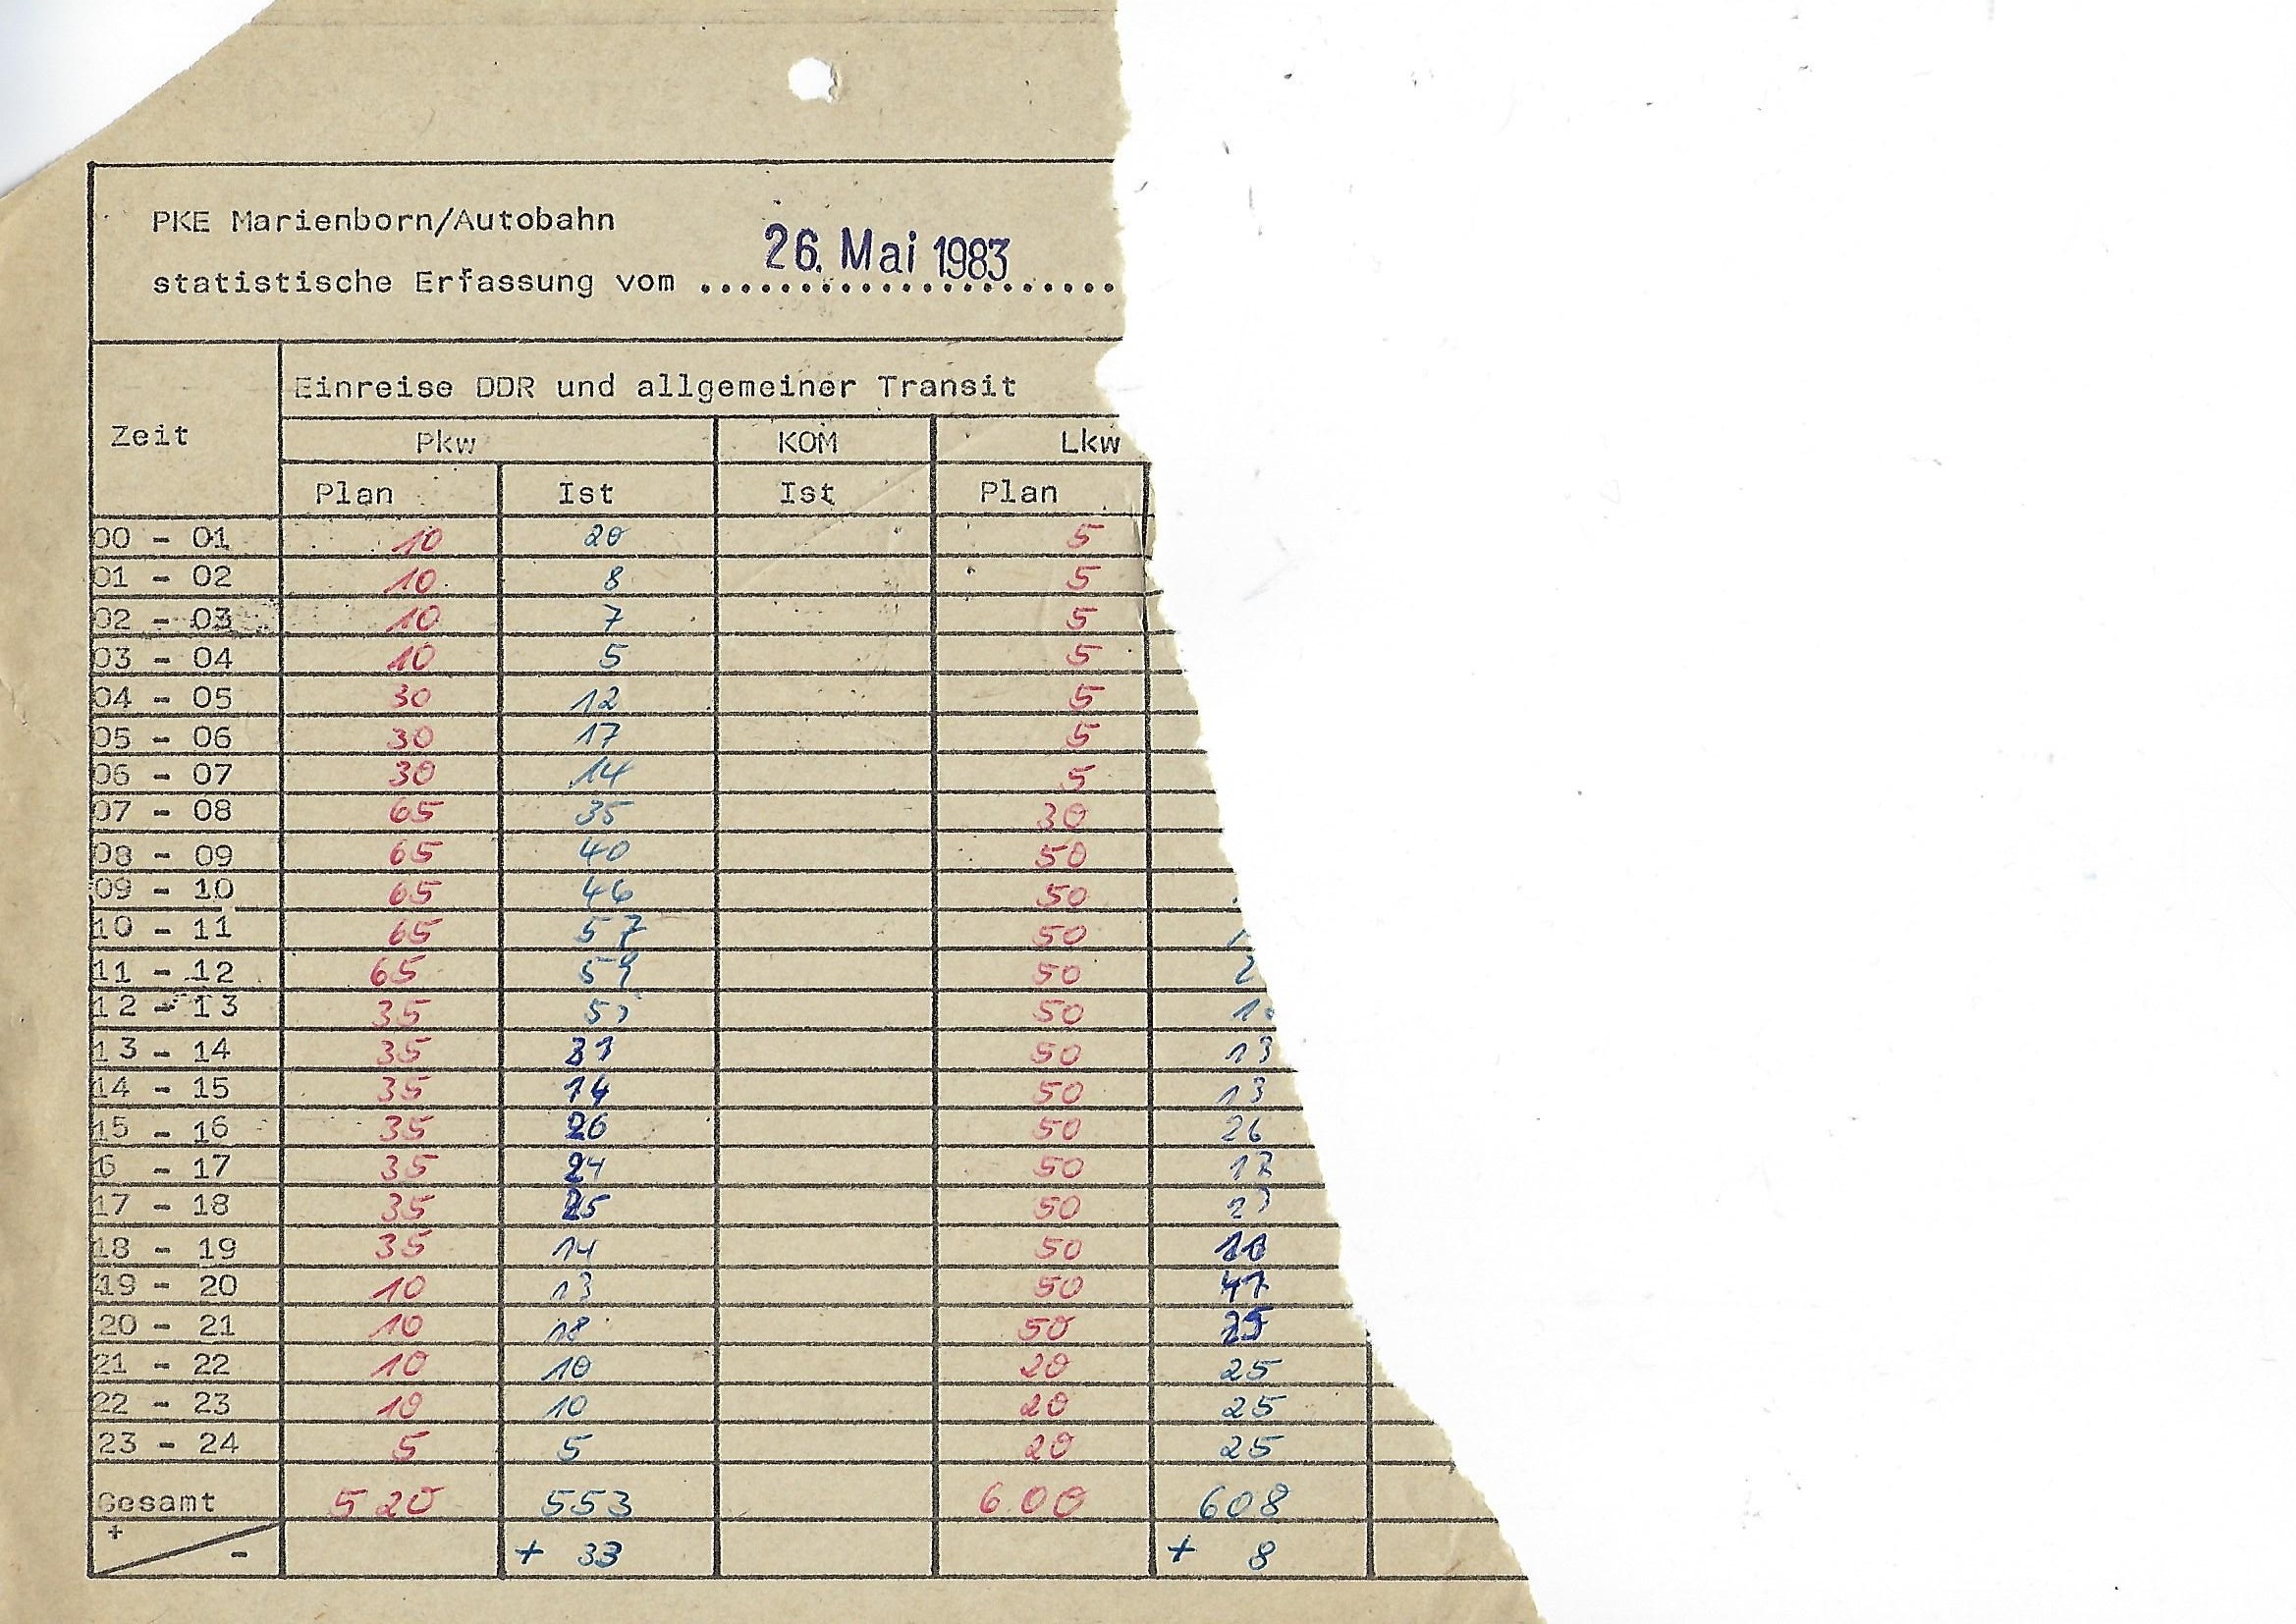 PKE Marienborn/Autobahn
26. Mai 1983
statistische Erfassung vom ......................
Einreise DDR und allgemeiner Transit
Zeit Pkw KOM Lkw
Plan Ist Ist Plan
00 - 01 10 20 5
01 - 02 10 8 5
02 - 03 10 7 5
03 - 04 10 5 5
04 - 05 30 12 5
05 - 06 30 17 5
06 - 07 30 14 5
07 - 08 65 35 30
08 - 09 65 40 50
09 - 10 65 46 50
10 - 11 65 57 50
11 - 12 65 50
12 - 13 35 50
13 - 14 35 31 50 13
14 - 15 35 14 50 13
15 - 16 35 26 50 26
6 - 17 35 24 50
17 - 18 35 25 50
18 - 19 35 14 50
19 - 20 10 13 50 47
20 - 21 10 18 50 25
21 - 22 10 10 20 25
22 - 23 10 10 20 25
23 - 24 5 5 20 25
Gesamt 520 553 600 608
+ - + 33 + 8